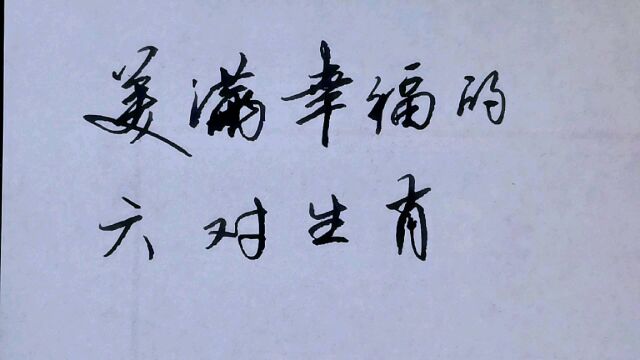 美满幸福的
六对生肖